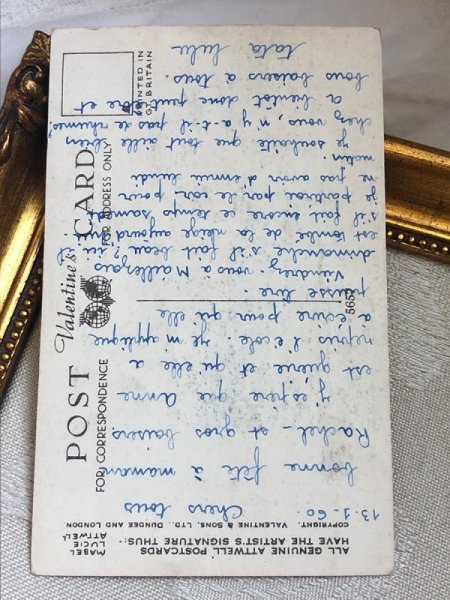 MABEL
LUCIE
ATTWELL
ALL GENUINE ATTWELL POSTCARDS
HAVE THE ARTIST'S SIGNATURE THUS:-
COPYRIGHT. VALENTINE & SONS, LTD., DUNDEE AND LONDON
POST Valentine's CARD
FOR CORRESPONDENCE
FOR ADDRESS ONLY
PRINTED IN
GT. BRITAIN
5652
13.1.60 Chers tous
bonne fête à maman
Rachel - et gros baisers
j'espère que Anne
est guérie et qu'elle a
repris l'école. je m'applique
à écrire pour qu'elle
puisse lire.
Viendrez-vous à Maillezais
dimanche s'il fait beau? ici il
est tombé de la neige aujourd'hui.
s'il fait encore ce temps samedi
je partirai par le car pour
ne pas avoir d'ennui lundi
matin
je souhaite que tout aille bien
chez vous, n'y a-t-il pas de rhume?
A bientôt donc peut être et
bons baisers à tous.
tata lulu